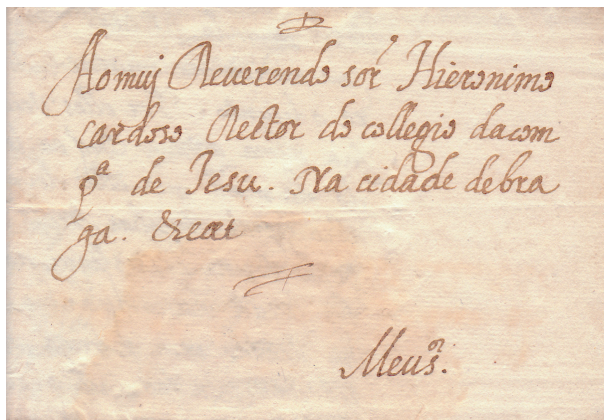 Ao muj Reuerendo sor Hieronimo
cardoso Rector do collegio da com
pª de Iesu. Na cidade de bra
ga. &cet
Meu sor.